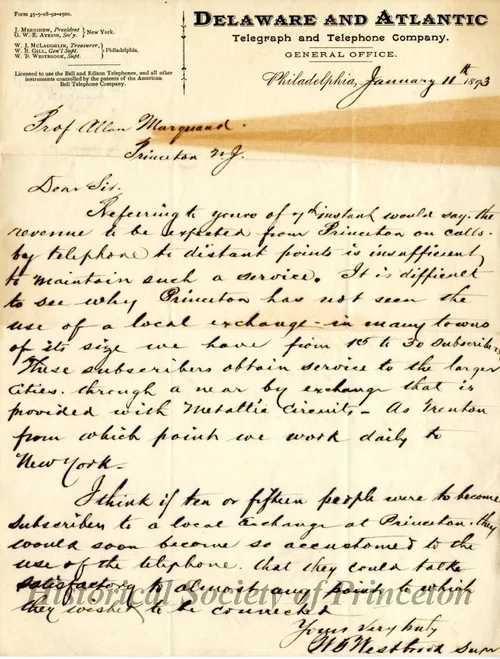 Form 35-5-28-92-2500.
J. Merrihew, President
G. W. E. Atkins, Sec'y } New York.
W. J. McLaughlin, Treasurer,
W. B. Gill, Gen'l Supt.
W. D. Westbrook, Supt. } Philadelphia.
Licensed to use the Bell and Edison Telephones, and all other
instruments controlled by the patents of the American
Bell Telephone Company.
DELAWARE AND ATLANTIC
Telegraph and Telephone Company.
GENERAL OFFICE.
Philadelphia, January 11th 1893
Prof Allan Marquand.
Princeton N.J.
Dear Sir.
Referring to yours of 7th instant would say. the
revenue to be expected from Princeton on calls.
by telephone to distant points is insufficient
to maintain such a service. It is difficult
to see why Princeton has not seen the
use of a local exchange - in many towns
of its size we have from 15 to 30 Subscribers
These subscribers obtain service to the larger
Cities. through a near by exchange that is
provided with Metallic Circuits - As Trenton
from which point we work daily to
New York -
I think if ten or fifteen people were to become
Subscribers to a local Exchange at Princeton. they
would soon become so accustomed to the
use of the telephone. that they could talk
satisfactory to almost any point to which
they wished to be connected
Yours Very truly
W D Westbrook Supt
Historical Society of Princeton